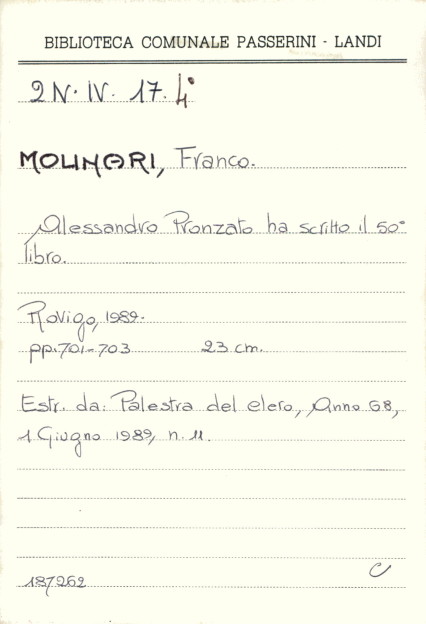 BIBLIOTECA COMUNALE PASSERINI - LANDI
2 N. IV. 17. 4°
MOLINARI, Franco.
Alessandro Pronzato ha scritto il 50°
libro.
Rovigo, 1989.
pp. 701-703 23 cm.
Estr. da: Palestra del clero, Anno 68,
1 Giugno 1989, n. 11.
187262
C